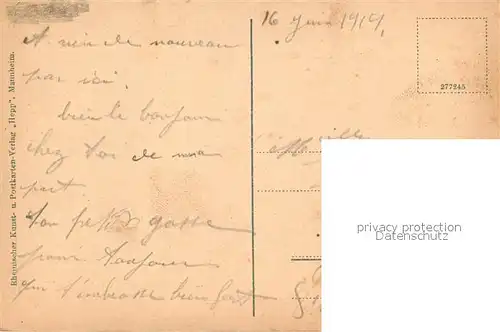 16 juin 1919,
277245
A rien de nouveau
par ici
bien le bonjour
chez toi de ma
part
ton petit gosse
pour toujours
qui t'embrasse bien fort
Rheinischer Kunst- u. Postkarten-Verlag „Hepp", Mannheim.
privacy protection
Datenschutz